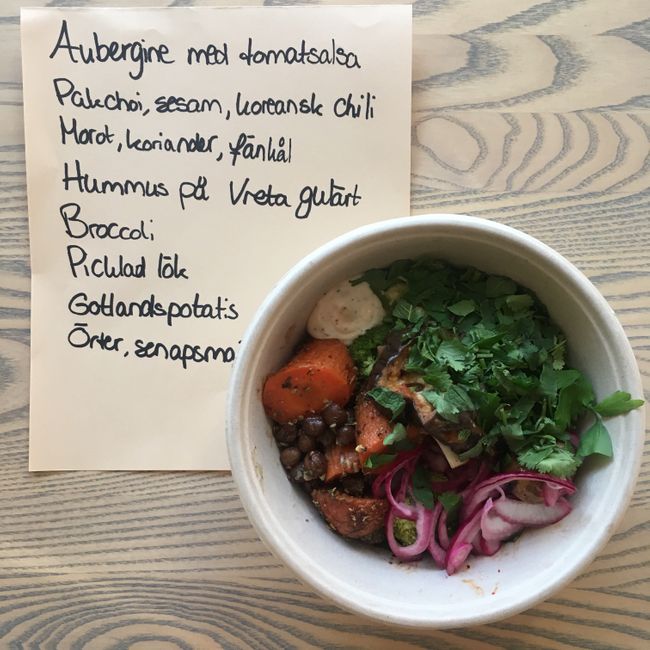 Aubergine med tomatsalsa
Pakchoi, sesam, koreansk chili
Morot, koriander, fänkål
Hummus på Vreta gulärt
Broccoli
Picklad lök
Gotlandspotatis
Örter,